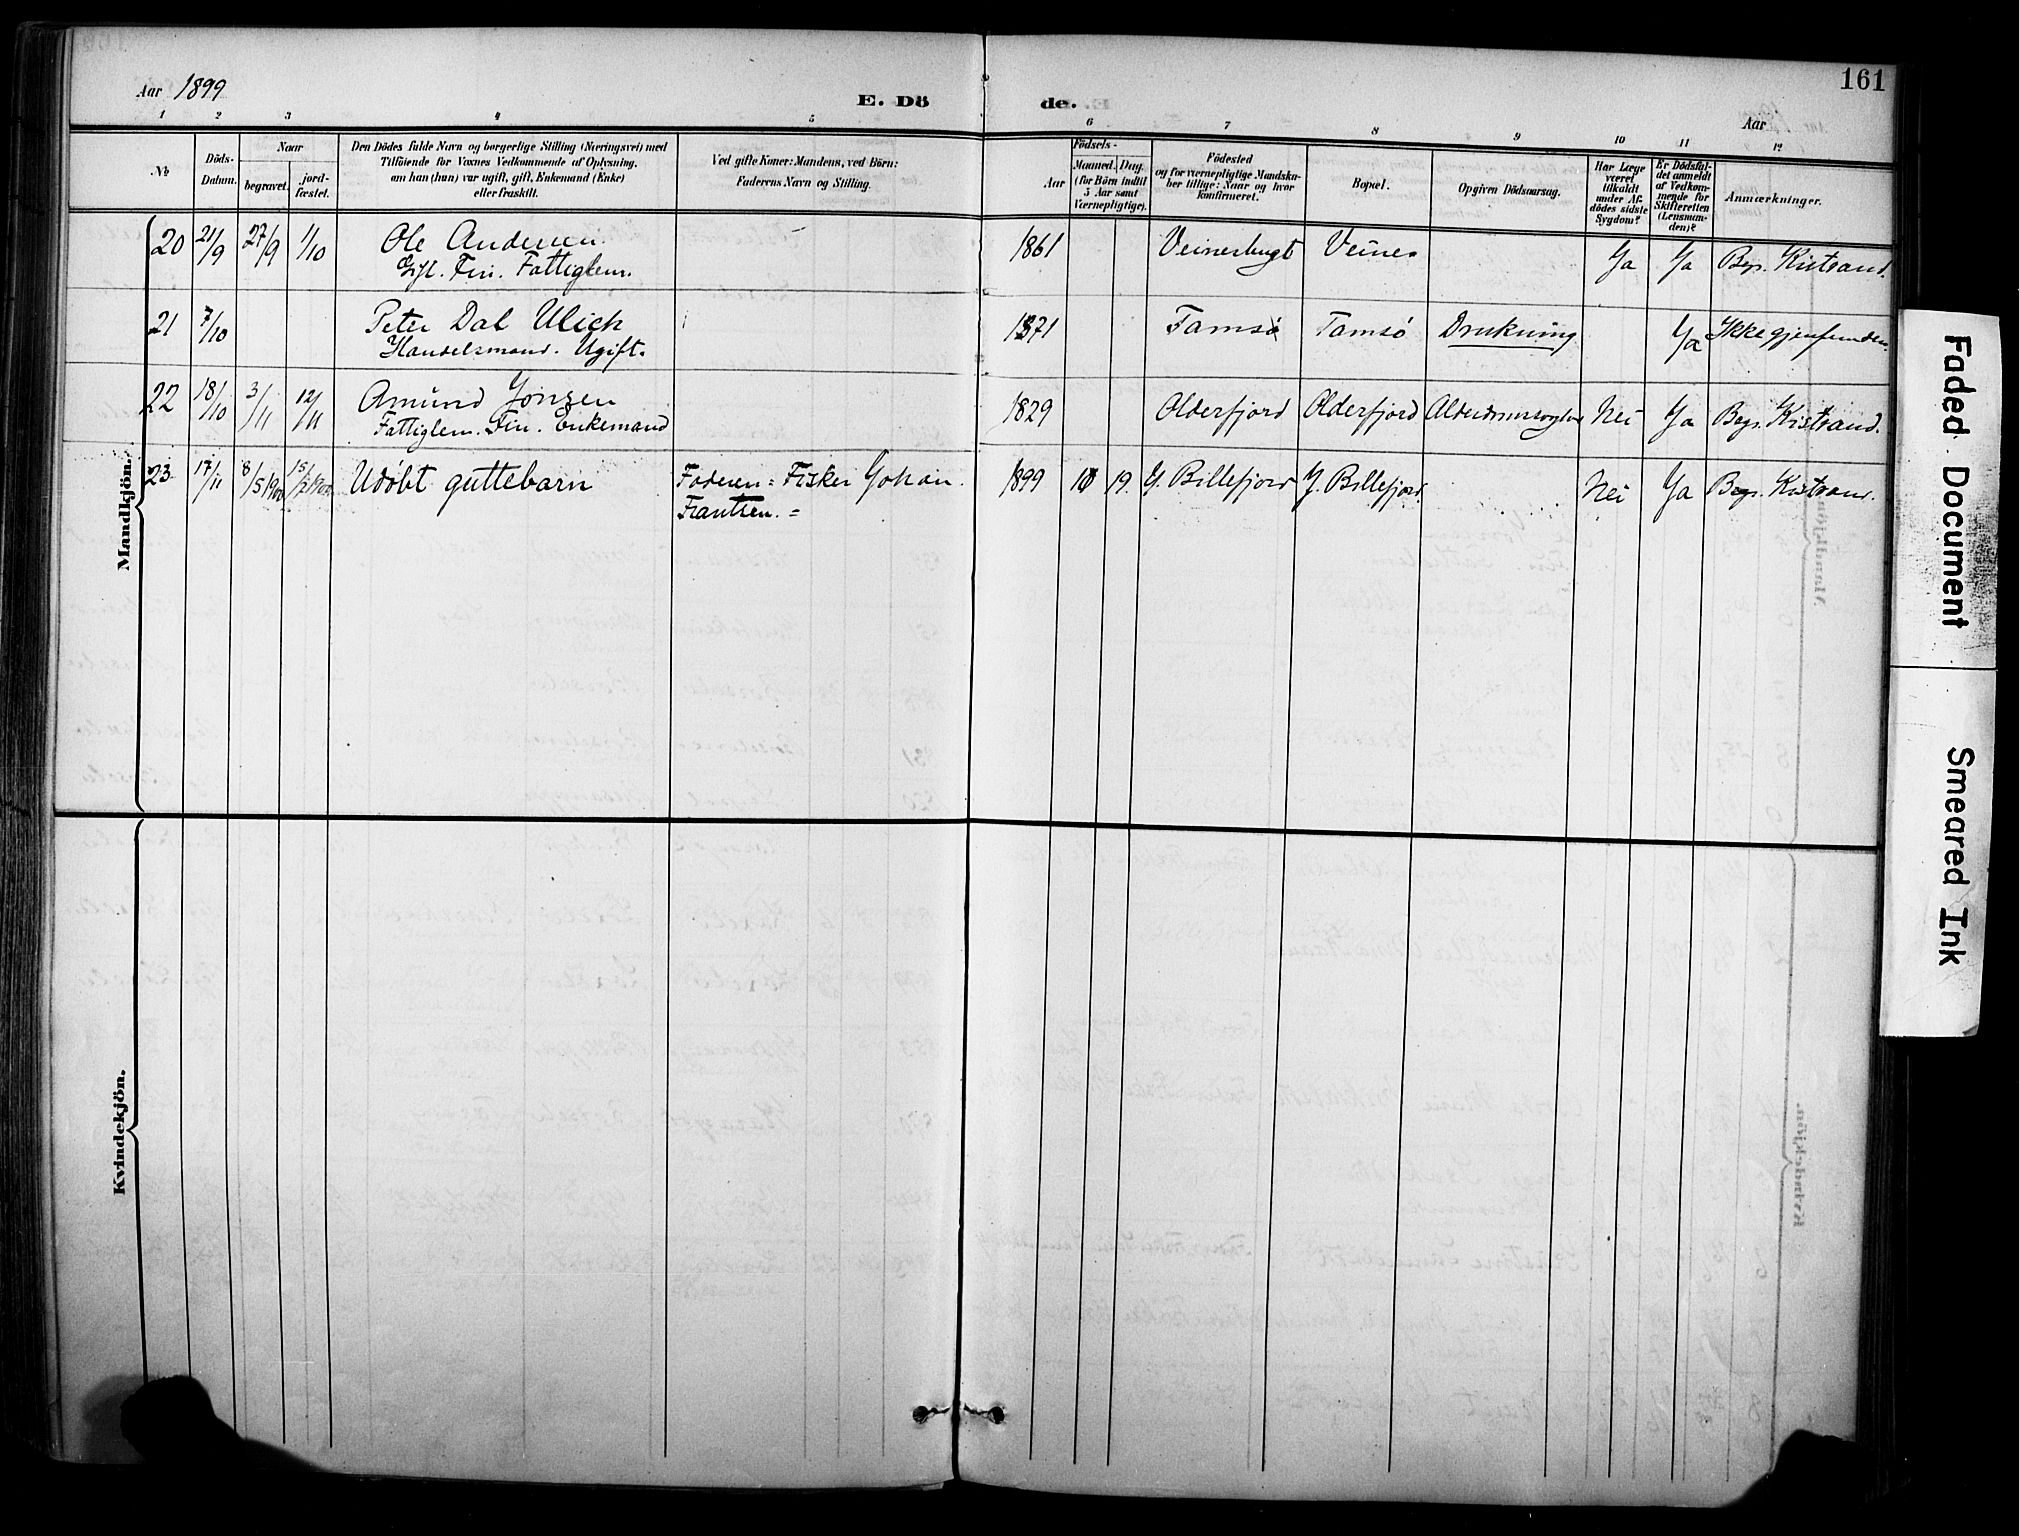 161
Aar 1899
E. Dö de.
Aar
1 2 3 4 5 6 7 8 9 10 11 12
No
Döds-
Datum.
Naar
begravet.
jord-
fæstet.
Den Dödes fulde Navn og borgerlige Stilling (Næringsvei) med
Tilföiende for Voxnes Vedkommende af Oplysning,
om han (hun) var ugift, gift, Enkemand (Enke)
eller fraskilt.
Ved gifte Koner: Mandens, ved Börn:
Faderens Navn og Stilling.
Födsels-
Aar
Maaned.
Dag.
(for Börn indtil
5 Aar samt
Værnepligtige).
Födested
og for værnepligtige Mandska-
ber tillige: Naar og hvor
konfirmeret.
Bopæl.
Opgiven Dödsaarsag.
Har Læge
været
tilkaldt
under Af-
dödes sidste
Sygdom?
Er Dödsfal-
det anmeldt
af Vedkom-
mende for
Skifteretten
(Lensman-
den)?
Anmærkninger.
Mandkjön.
20 21/9 27/9 1/10 Ole Andersen 1861 Veinesbugt Veines Ja Ja Begr. Kistrand.
Gift. Fin. Fattiglem.
21 7/10 Peter Dal Ulich 1871 Tamsö Tamsö Drukning Ja Ikke gjenfunden.
Handelsmand. Ugift.
22 18/10 3/11 12/11 Amund Jonsen 1829 Olderfjord Olderfjord Nei Ja Begr. Kistrand.
Fattiglem. Fin. Enkemand
23 17/11 8/5 1900 Udöbt guttebarn Faderen = Fisker Johan 1899 19. Y. Billefjord Y. Billefjord. Nei Ja Begr. Kistrand.
Frantsen. =
Kvindekjön.
Faded Document
Smeared Ink